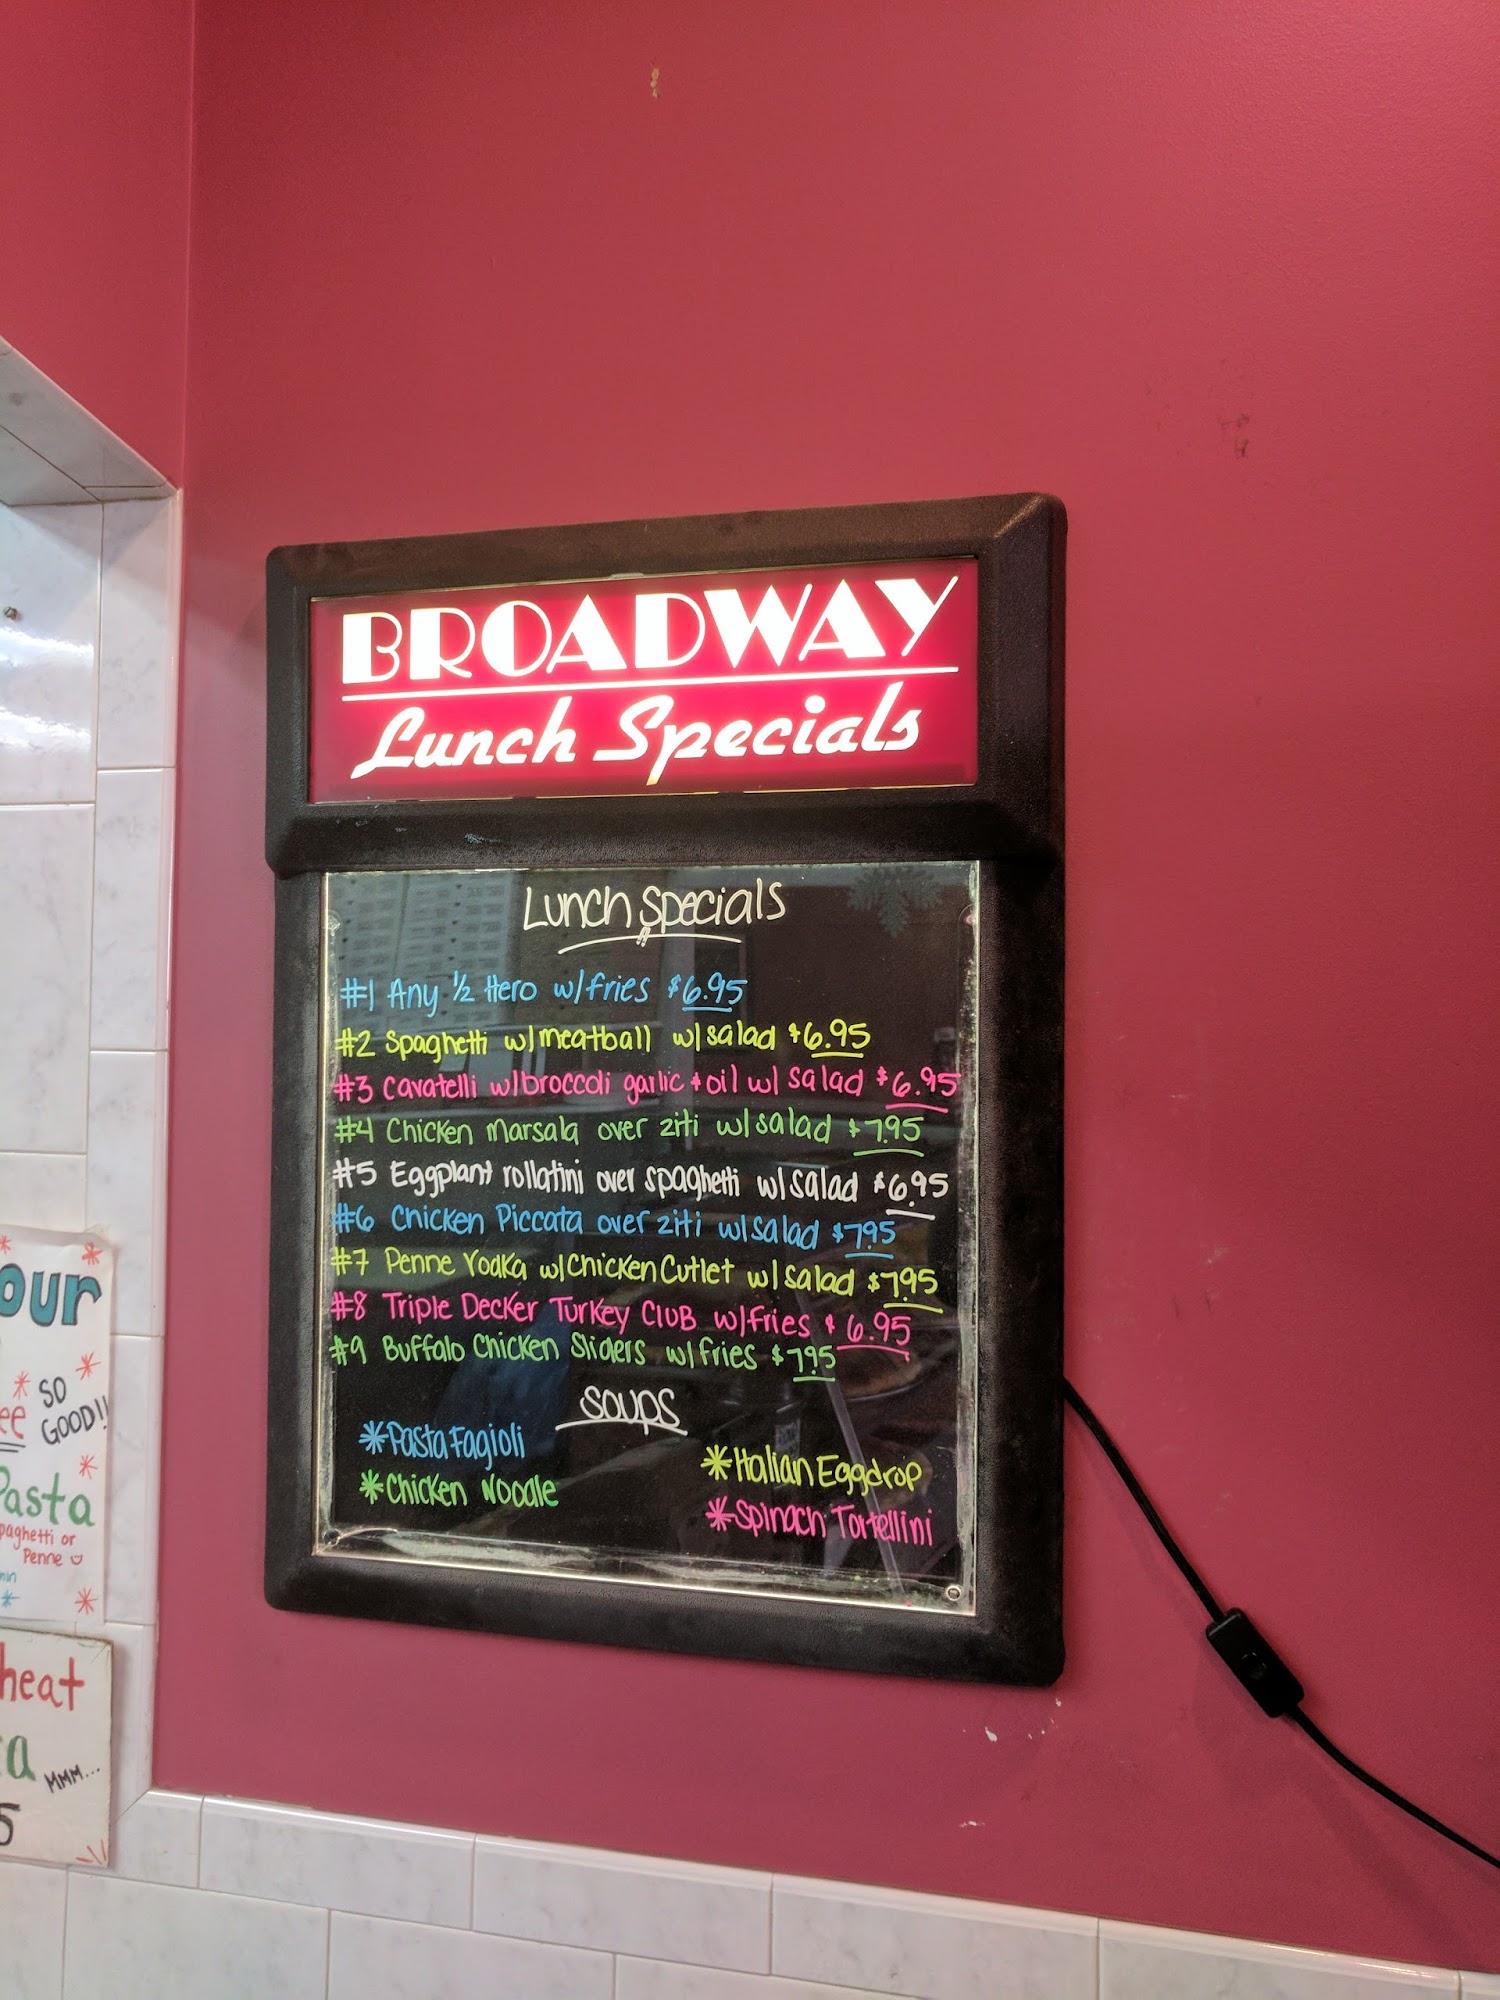 BROADWAY
Lunch Specials
Lunch Specials
#1 Any 1/2 Hero w/fries $6.95
#2 Spaghetti w/meatball w/salad $6.95
#3 Cavatelli w/broccoli garlic + oil w/ salad $6.95
#4 Chicken Marsala over ziti w/salad $7.95
#5 Eggplant rollatini over spaghetti w/salad $6.95
#6 Chicken Piccata over ziti w/salad $7.95
#7 Penne Vodka w/Chicken Cutlet w/salad $7.95
#8 Triple Decker Turkey Club w/fries $6.95
#9 Buffalo Chicken Sliders w/fries $7.95
Soups
*Pasta Fagioli
*Italian Eggdrop
*Chicken Noodle
*Spinach Tortellini
our
SO
GOOD!!
ee
Pasta
paghetti or
Penne
min
heat
a
MMM...
5